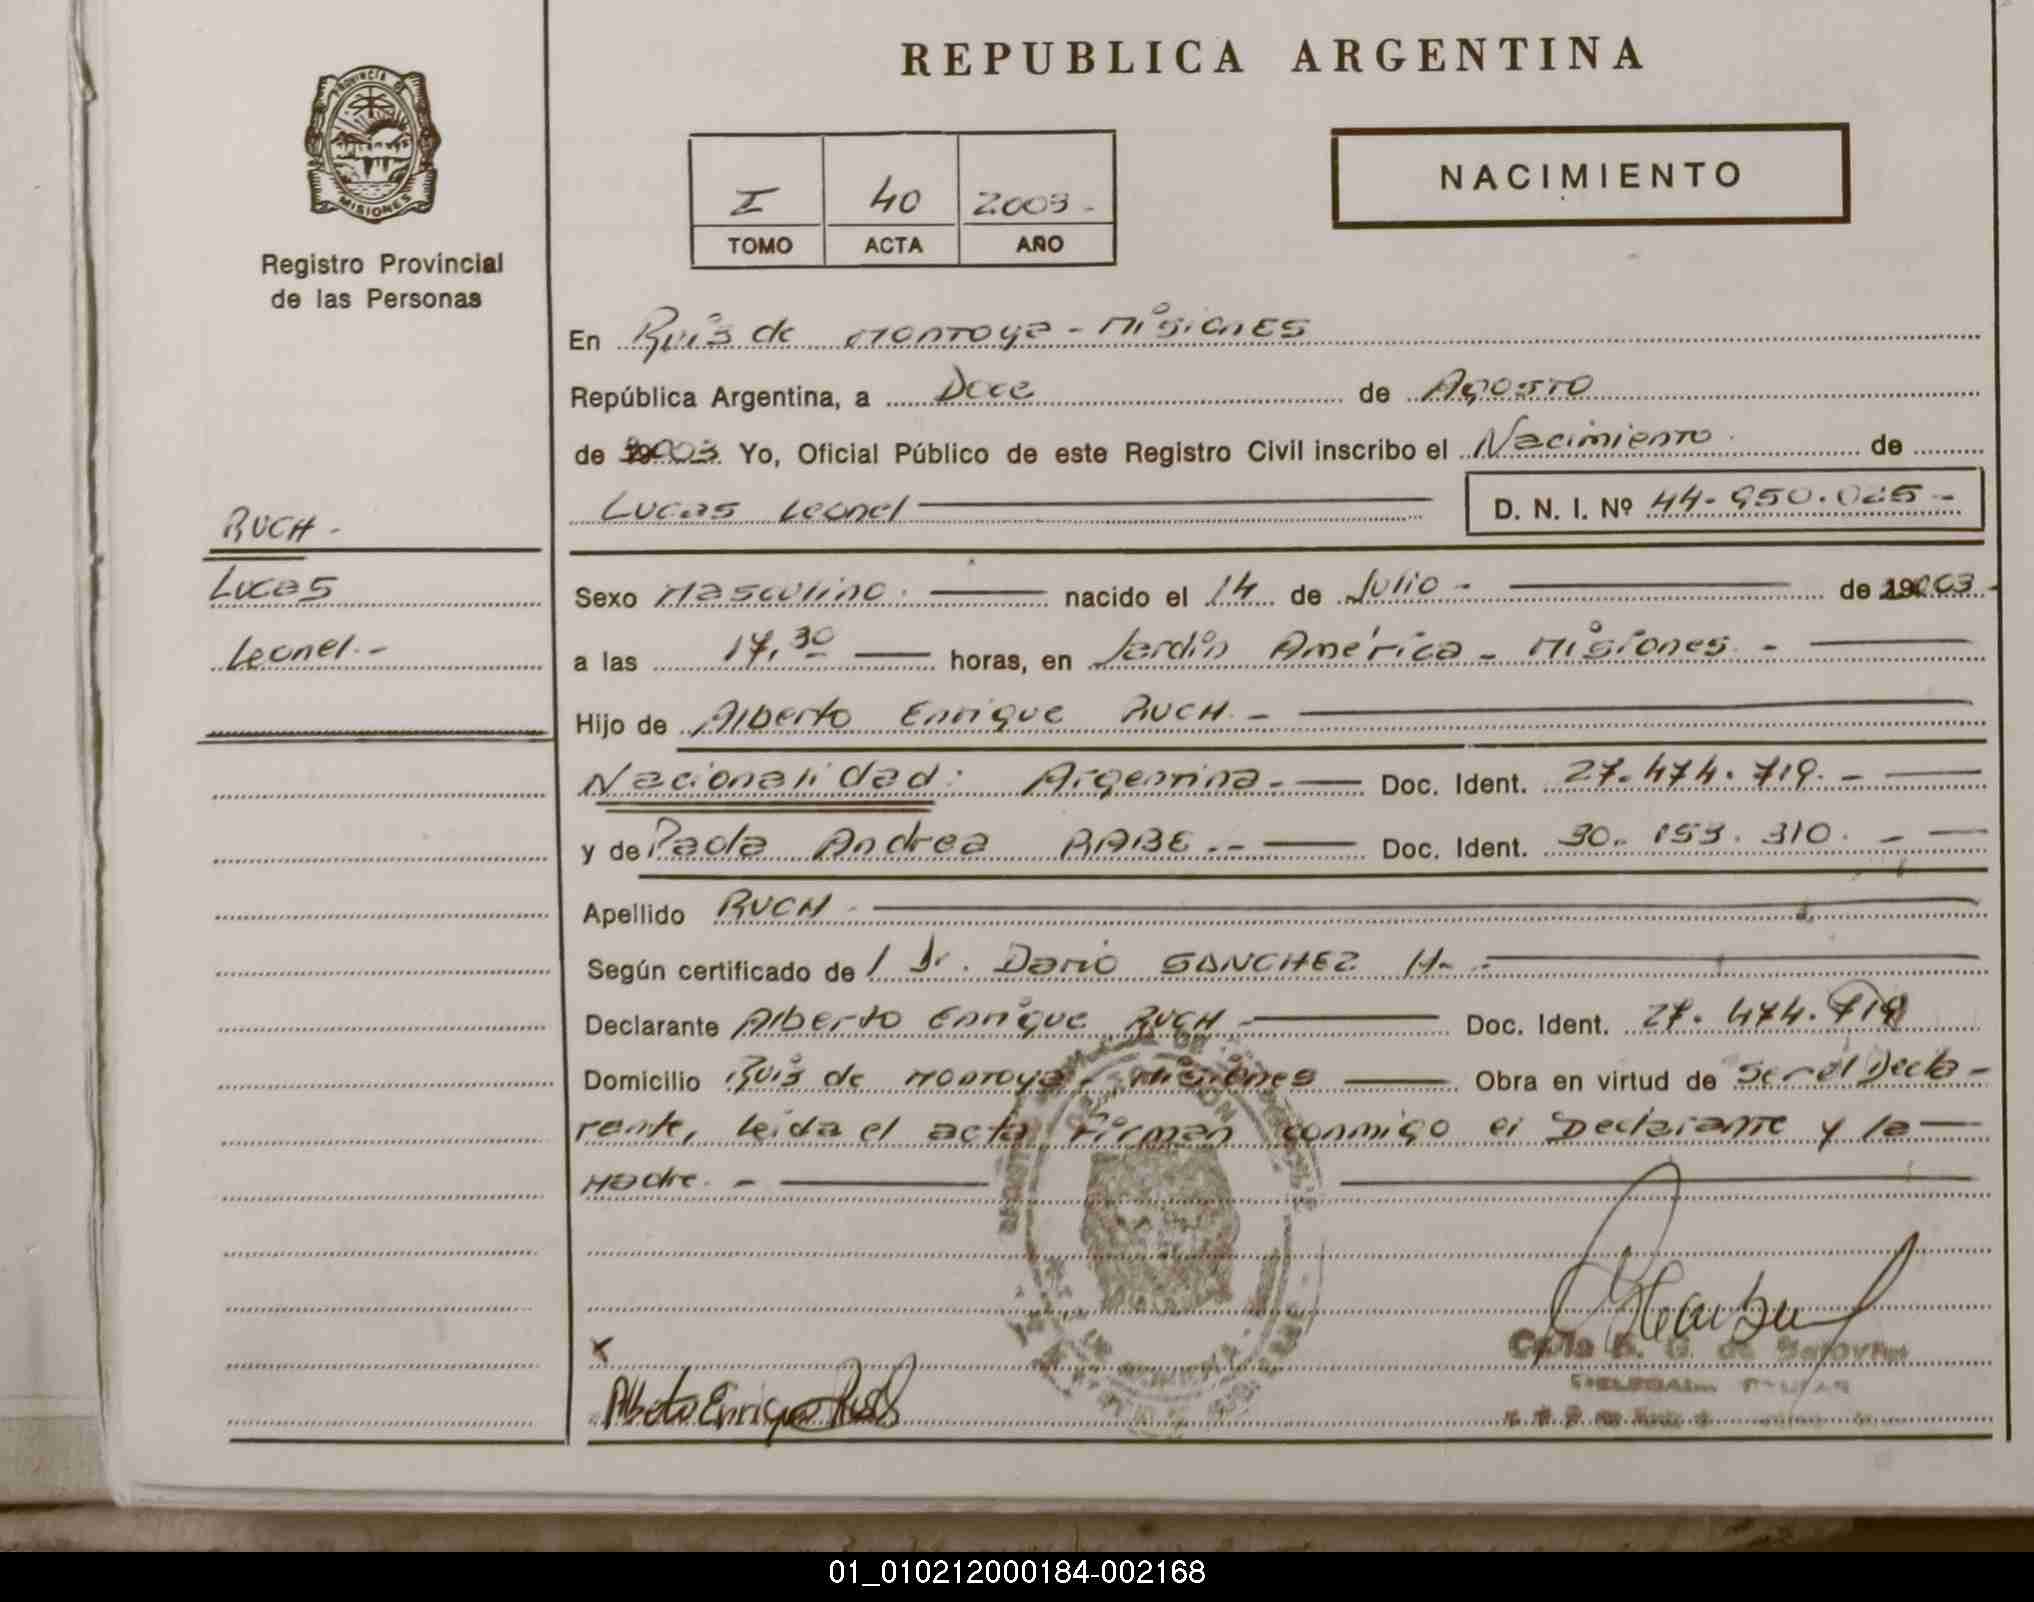 REPUBLICA ARGENTINA
PROVINCIA DE
MISIONES
Registro Provincial
de las Personas
I 40 2003 -
TOMO ACTA AÑO
NACIMIENTO
En Ruis de Montoya - Misiones
República Argentina, a Doce de Agosto
de 2003 Yo, Oficial Público de este Registro Civil inscribo el Nacimiento. de
Lucas Leonel D. N. I. Nº 44. 950. 025 -
RUCH -
Lucas
Leonel. -
Sexo Masculino. nacido el 14 de Julio - de 2003 -
a las 17,30 horas, en Jardín América - Misiones. -
Hijo de Alberto Enrique RUCH. -
Nacionalidad: Argentina. - Doc. Ident. 27. 474. 719. -
y de Paola Andrea RABE. - Doc. Ident. 30. 153. 310. -
Apellido RUCH -
Según certificado de / Dr. Dario SANCHEZ H. -
Declarante Alberto Enrique RUCH - Doc. Ident. 27. 474. 719
Domicilio Ruis de Montoya - Misiones Obra en virtud de Ser el Decla -
rante, leida el acta, Firman conmigo el Declarante y la
Madre. -
x
Alberto Enrique Ruch
01_010212000184-002168